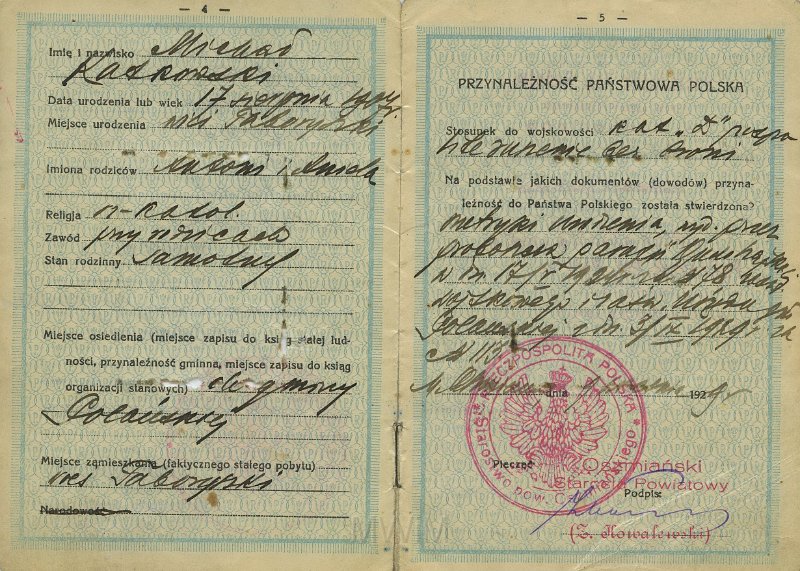 — 4 —
Imię i nazwisko Michał
Ratkowski
Data urodzenia lub wiek 17 sierpnia 1904 r.
Miejsce urodzenia wieś Taboryszki
Imiona rodziców Antoni i Aniela
Religja rz-katol.
Zawód przy rodzicach
Stan rodzinny samotny
Miejsce osiedlenia (miejsce zapisu do ksiąg stałej lud-
ności, przynależność gminna, miejsce zapisu do ksiąg
organizacji stanowych) do gminy
Polańskiej
Miejsce zamieszkania (faktycznego stałego pobytu)
wieś Taboryszki
Narodowość
— 5 —
PRZYNALEŻNOŚĆ PAŃSTWOWA POLSKA
Stosunek do wojskowości kat. „D"
bez broni
Na podstawie jakich dokumentów (dowodów) przyna-
leżność do Państwa Polskiego została stwierdzona?
metryki urodzenia, wyd. przez
proboszcza parafji
z dn. 17
i zaśw. Urzędu gm.
Polańskiej z dn. 3/IX 1929 r. za
№ 113
dnia 1929 r.
RZECZPOSPOLITA POLSKA
Starostwo pow.
Pieczęć
Oszmiański
Starosta Powiatowy
Podpis:
(Z. Kowalewski)
MWM